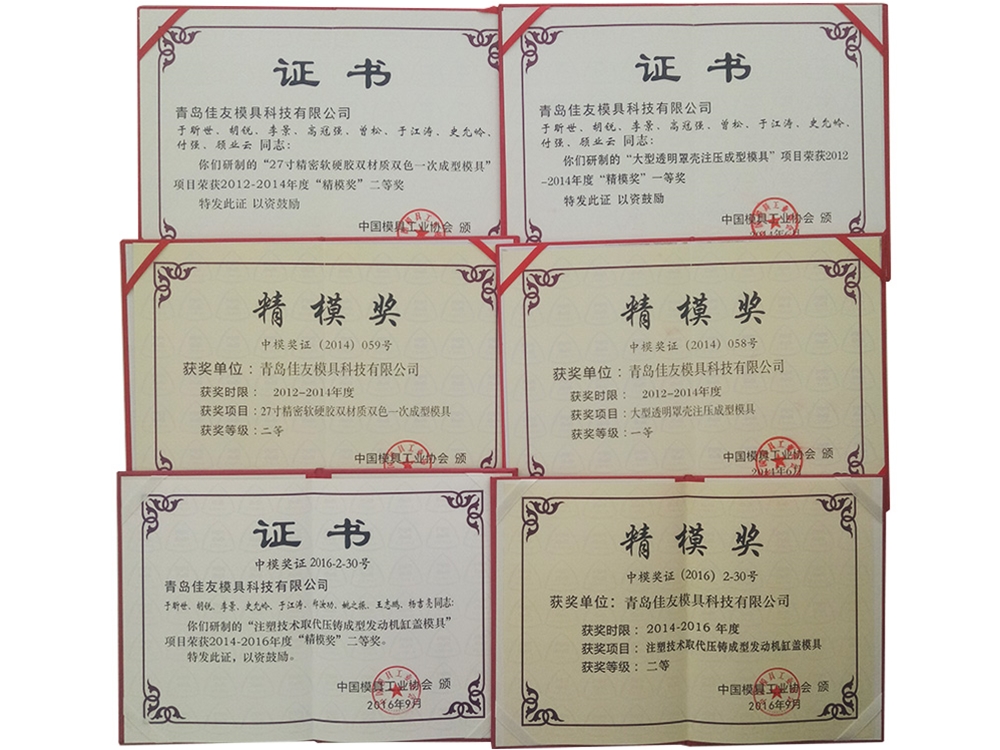 证书
青岛佳友模具科技有限公司
于昕世、胡锐、李景、高冠强、曾松、于江涛、史允岭、
付强、顾业云 同志：
你们研制的“27寸精密软硬胶双材质双色一次成型模具”
项目荣获2012-2014年度“精模奖”二等奖
特发此证 以资鼓励
中国模具工业协会 颁
证书
青岛佳友模具科技有限公司
于昕世、胡锐、李景、高冠强、曾松、于江涛、史允岭、
付强、顾业云 同志：
你们研制的“大型透明罩壳注压成型模具”项目荣获2012
-2014年度“精模奖”一等奖
特发此证 以资鼓励
中国模具工业协会 颁
2014年6月
精模奖
中模奖证（2014）059号
获奖单位：青岛佳友模具科技有限公司
获奖时限：2012-2014年度
获奖项目：27寸精密软硬胶双材质双色一次成型模具
获奖等级：二等
中国模具工业协会 颁
精模奖
中模奖证（2014）058号
获奖单位：青岛佳友模具科技有限公司
获奖时限：2012-2014年度
获奖项目：大型透明罩壳注压成型模具
获奖等级：一等
中国模具工业协会 颁
2014年6月
证书
中模奖证 2016-2-30号
青岛佳友模具科技有限公司
于昕世、胡锐、李景、史允岭、于江涛、王志鹏、杨吉亮同志：
你们研制的“注塑技术取代压铸成型发动机缸盖模具”
项目荣获2014-2016年度“精模奖”二等奖。
特发此证，以资鼓励。
中国模具工业协会 颁
2016年9月
精模奖
中模奖证（2016）2-30号
获奖单位：青岛佳友模具科技有限公司
获奖时限：2014-2016 年度
获奖项目：注塑技术取代压铸成型发动机缸盖模具
获奖等级：二等
中国模具工业协会 颁
2016年9月